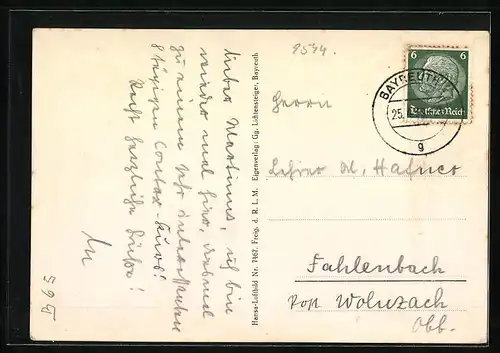 9544.
6 6
Deutsches Reich
BAYREUTH
25.
g
Lieber Martinus, ich bin
wieder mal hier, diesmal
zu einem sehr interessanten
8tägigen Contax-Kurs!
Recht herzliche Grüße!
Hansa-Luftbild Nr. 7467. Freig. d. R. L. M. Eigenverlag: Gg. Lührensteiger, Bayreuth
Herrn
Lehrer M. Hafner
Fahlenbach
Post Wolnzach
Obb.